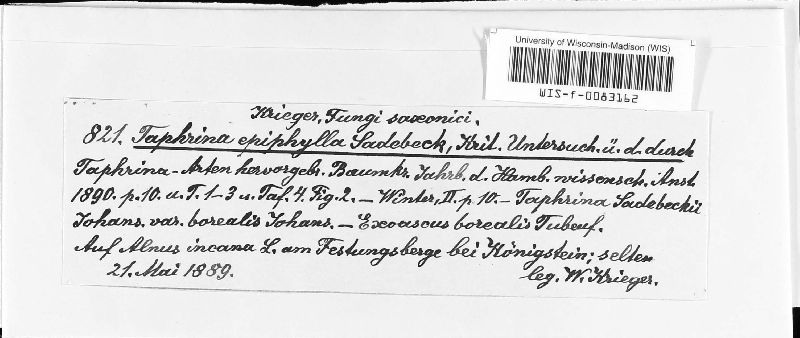 University of Wisconsin-Madison (WIS)
WIS-f-0083162
Krieger, Fungi saxonici.
821. Taphrina epiphylla Sadebeck, Krit. Untersuch. ü. d. durch
Taphrina-Arten hervorgebr. Baumkr. Jahrb. d. Hamb. wissensch. Anst.
1890. p. 10. u. T. 1-3 u. Taf. 4. Fig. 2. — Winter, II. p. 10. — Taphrina Sadebeckii
Johans. var. borealis Johans. — Exoascus borealis Tubeuf.
Auf Alnus incana L. am Festungsberge bei Königstein; selten
21. Mai 1889.
leg. W. Krieger.